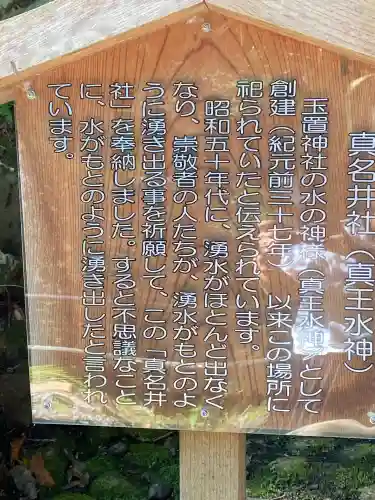 真名井社（真玉水神）
玉置神社の水の神様（真玉水神）として
創建（紀元前三十七年）以来この場所に
祀られていたと伝えられています。
昭和五十年代に、湧水がほとんど出なく
なり、崇敬者の人たちが、湧水がもとのよ
うに湧き出る事を祈願して、この「真名井
社」を奉納しました。すると不思議なこと
に、水がもとのように湧き出したと言われ
ています。